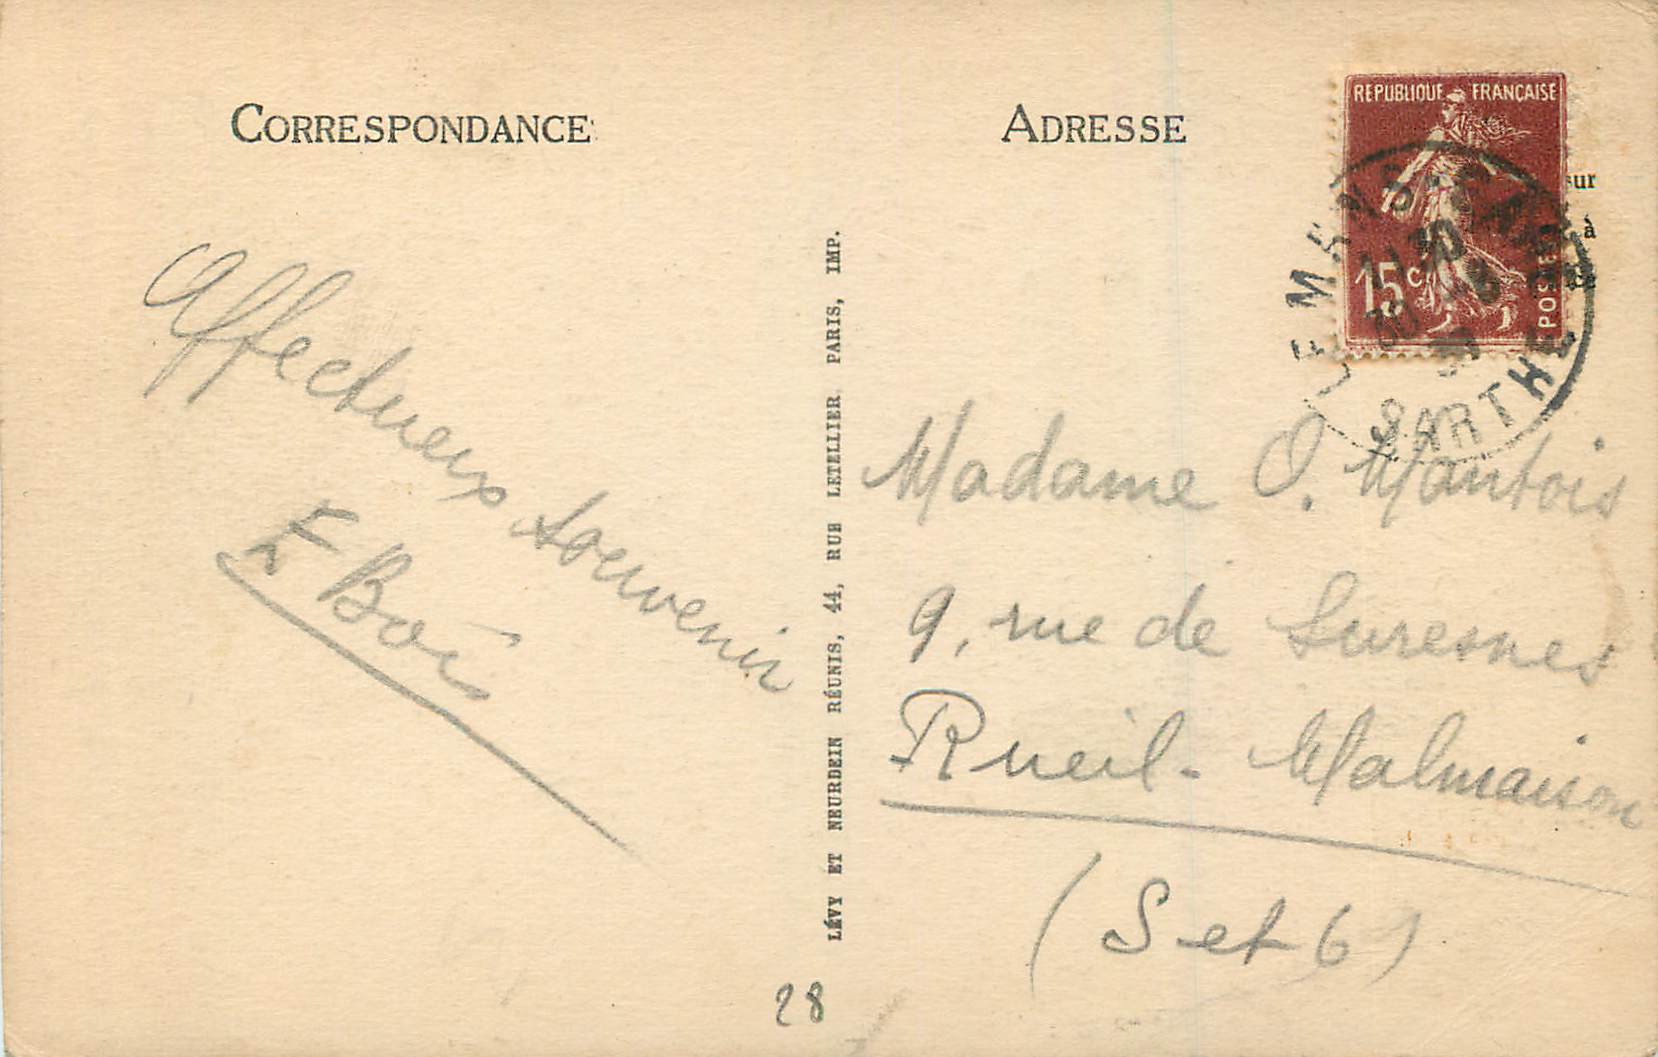 CORRESPONDANCE
ADRESSE
REPUBLIQUE FRANÇAISE
15c
POSTES
sur
à
LE MANS-GARE
SARTHE
Affectueux souvenir
LÉVY ET NEURDEIN RÉUNIS, 44, RUE LETELLIER, PARIS, IMP.
Madame O. Mantois
9, rue de Suresnes
Rueil-Malmaison
(S et 6)
28